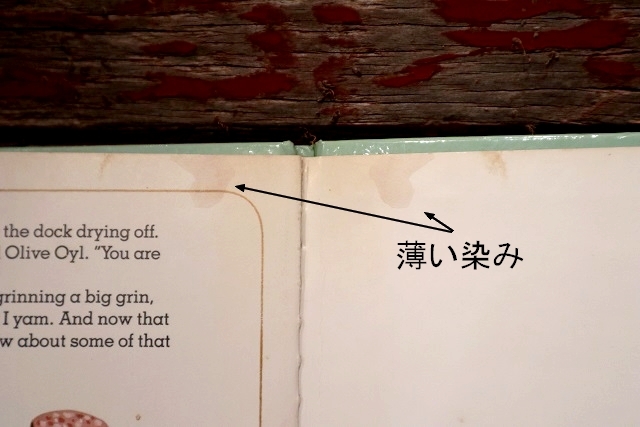 the dock drying off.
Olive Oyl. “You are
grinning a big grin,
I yam. And now that
w about some of that
薄い染み